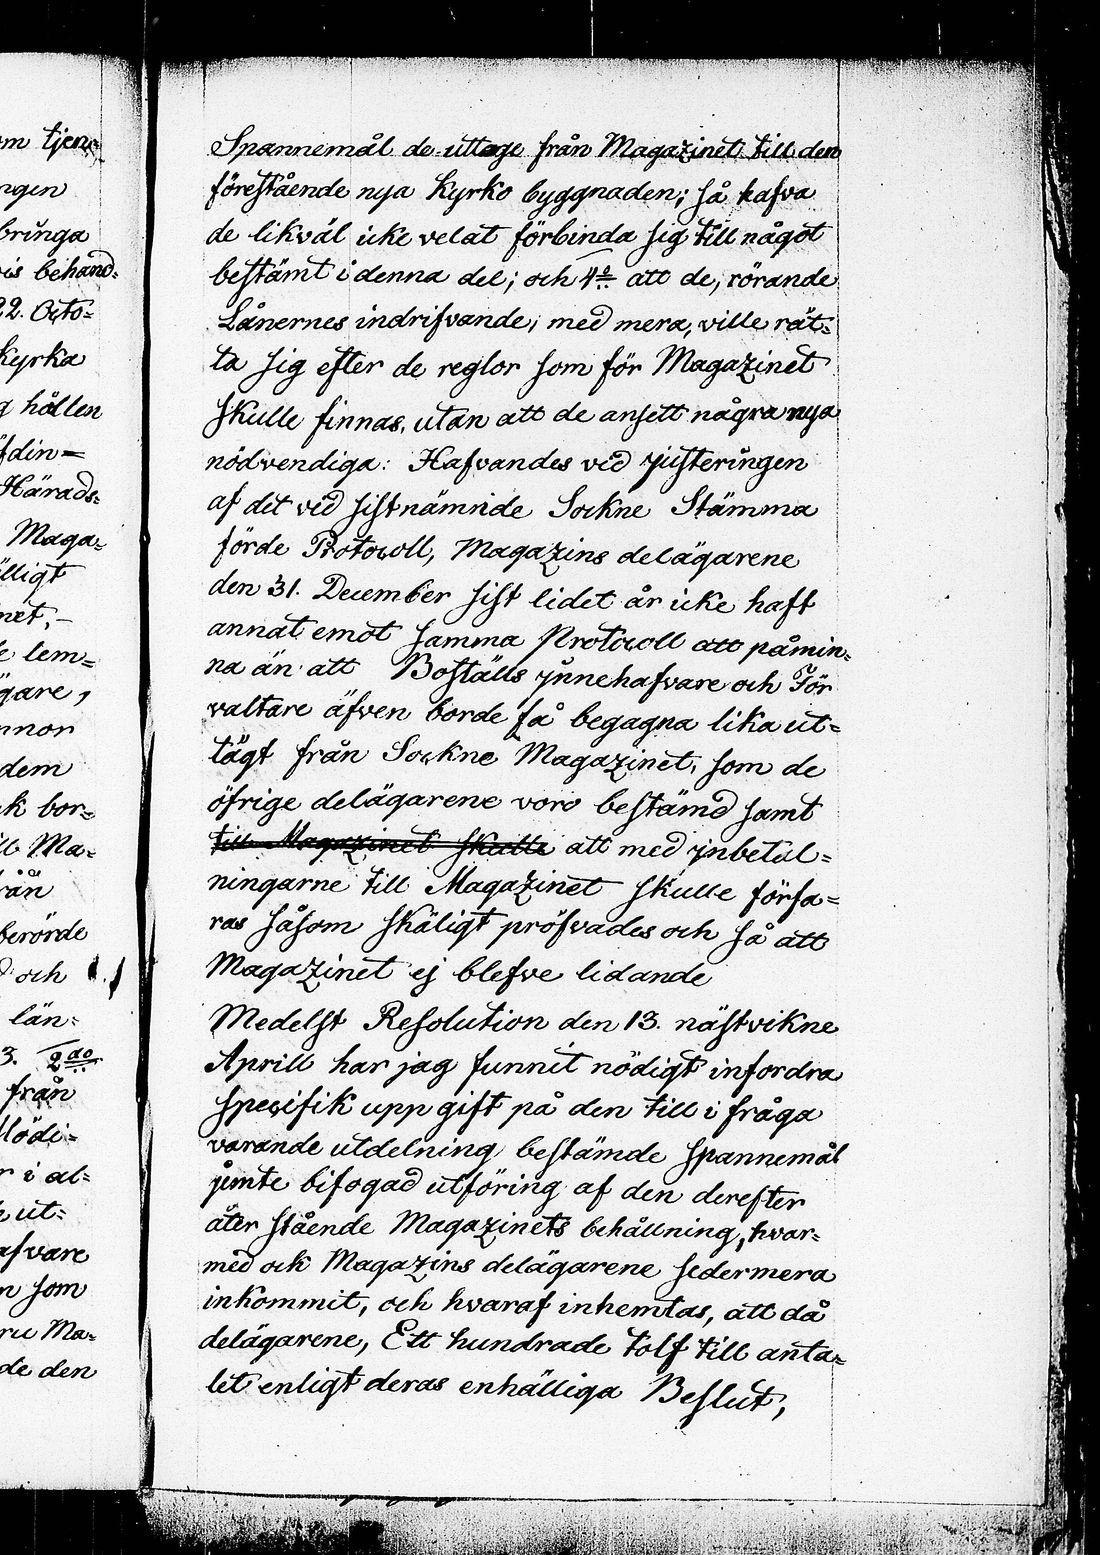 om tjen-
ngen
bringa
is behand-
22. Octo=
Kyrka
g hållen
fdin=
Härads-
Maga-
lligt
net,-
e lem=
gare,
nnor
dem
k bor=
ll Ma=
rån
berörde
och
län-
3. 2do
från
r i al=
ut=
afvare
n som
Ma=
de den
Spannemål de uttage från Magazinet till den
förestående nya Kyrko byggnaden; så hafva
de likväl icke velat förbinda sig till något
bestämt i denna del; och 4o att de, rörande
Lånernes indrifvande, med mera, ville rät-
ta sig efter de reglor som för Magazinet
skulle finnas, utan att de ansett några nya
nödvendiga: Hafvandes vid justeringen
af det vid sistnämnde Sockne Stämma
förde Protocoll, Magazins delägarene
den 31. December sist lidet år icke haft
annat emot samma Protocoll att påmin-
na än att Boställs jnnehafvare och För
valtare äfven borde få begagna lika ut=
tägt från Sockne Magazinet, som de
öfrige delägarene voro bestämd samt
till Magazinet skulle att med jnbetal=
ningarne till Magazinet skulle förfa=
ras såsom skäligt pröfvades och så att
Magazinet ej blefve lidande
Medelst Resolution den 13. nästvikne
Aprill har jag funnit nödigt infordra
specifik uppgift på den till i fråga
varande utdelning bestämde spannemål
jemte bifogad utföring af den derefter
åter stående Magazinets behållning, hvar-
med ock Magazins delägarene sedermera
inkommit, och hvaraf inhemtas, att då
delägarene, Ett hundrade tolf till anta=
let enligt deras enhälliga Beslut,